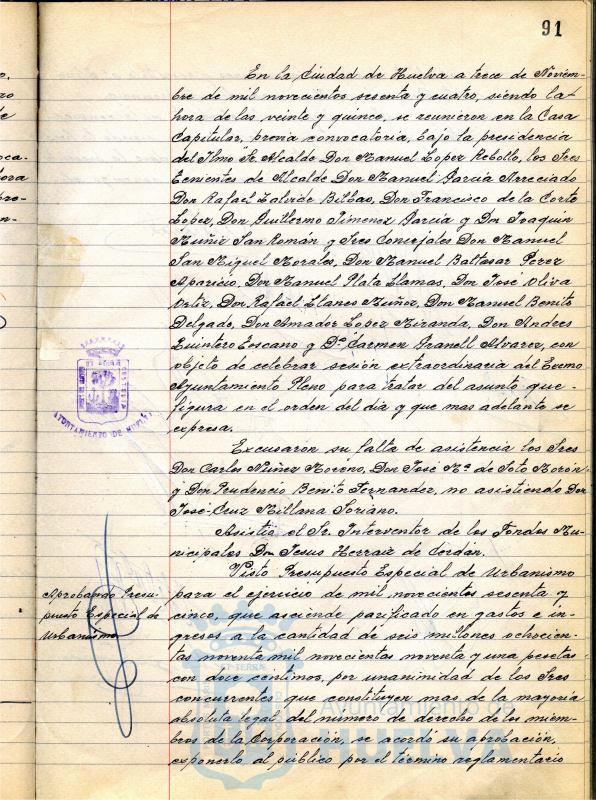 91
En la Ciudad de Huelva a trece de Noviem-
bre de mil novecientos sesenta y cuatro, siendo la
hora de las veinte y quince, se reunieron en la Casa
Capitular, previa convocatoria, bajo la presidencia
del Ilmo Sr. Alcalde Don Manuel Lopez Rebollo, los Sres
Tenientes de Alcalde Don Manuel Garcia Arreciado
Don Rafael Zalvide Bilbao, Don Francisco de la Corte
Lopez, Don Guillermo Jimenez Garcia y Don Joaquin
Muñiz San Román y Sres Concejales Don Manuel
San Miguel Morales, Don Manuel Baltasar Perez
Aparicio, Don Manuel Plata Llamas, Don José Oliva
Ortiz, Don Rafael Llanes Muñoz, Don Manuel Benito
Delgado, Don Amador Lopez Miranda, Don Andres
Quintero Escano y Dª Carmen Granell Alvarez, con
objeto de celebrar sesión extraordinaria del Excmo
Ayuntamiento Pleno para tratar del asunto que
figura en el orden del dia y que mas adelante se
expresa.
Excusaron su falta de asistencia los Sres
Don Carlos Nuñez Moreno, Don José Mª de Sota Morón
y Don Prudencio Benito Fernandez, no asistiendo Don
José-Cruz Millana Soriano.
Asistió el Sr. Interventor de los Fondos Mu-
nicipales Don Jesus Herraiz de Cerdán.
Aprobando Presu-
puesto Especial de
Urbanismo
Visto Presupuesto Especial de Urbanismo
para el ejercicio de mil novecientos sesenta y
cinco, que asciende parificado en gastos e in-
gresos a la cantidad de seis millones ochocien-
tas noventa mil novecientos noventa y una pesetas
con doce centimos, por unanimidad de los Sres
concurrentes que constituyen mas de la mayoria
absoluta legal del número de derecho de los miem-
bros de la Corporación, se acordó su aprobación,
exponerlo al público por el término reglamentario
AYUNTAMIENTO DE HUELVA
Ayuntamiento de
HUELVA